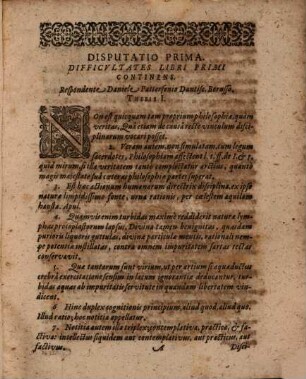 DISPUTATIO PRIMA.
DIFFICULTATES LIBRI PRIMI
CONTINENS.
Respondente Daniele Pattersonio Dantisc. Borusso.
THESIS I.
NOn est quicquam tam proprium philosophiæ, quàm
veritas, Quâ etiam de causâ rectè vinculum disci-
plinarum vocari posset.
2. Veram autem, non simulatam, cum legum
sacerdotes, Philosophiam affectent l. 1. ff. de I. & I.
quid mirum, si illa veritatem tantò complectatur arctius, quantò
magis majestate suâ cæteras philosophiæ partes superat.
3. Est hæc actionum humanarum directrix disciplina, ex ipso
naturæ limpidissimo fonte, urna rationis, per cælestem aquilam
hausta.
4. Quem vi enim turbidum maximè reddiderit naturæ lym-
phas protoplastorum lapsus, Devina tamen benignitas, quædam
purioris liquoris guttulas, devina particula mentis, rationali nem-
pe potentiæ instillatas, contra omnem impuritatem sartas tectas
conservavit.
5. Quæ tantarum sunt virium, ut per artium seu aquæductus
turbidas aquas ab impuritatis servitute in quandam libertatem vin-
dicent.
6 Hinc duplex cognitionis principium, aliud quod, aliud quo.
Illud ratio; hoc notitia appellatur.
7. Notitia autem illa triplex, contemplativa, practica, & fa-
ctiva: intellectus siquidem aut contemplativus, aut practicus, aut
factivus. A Disci-